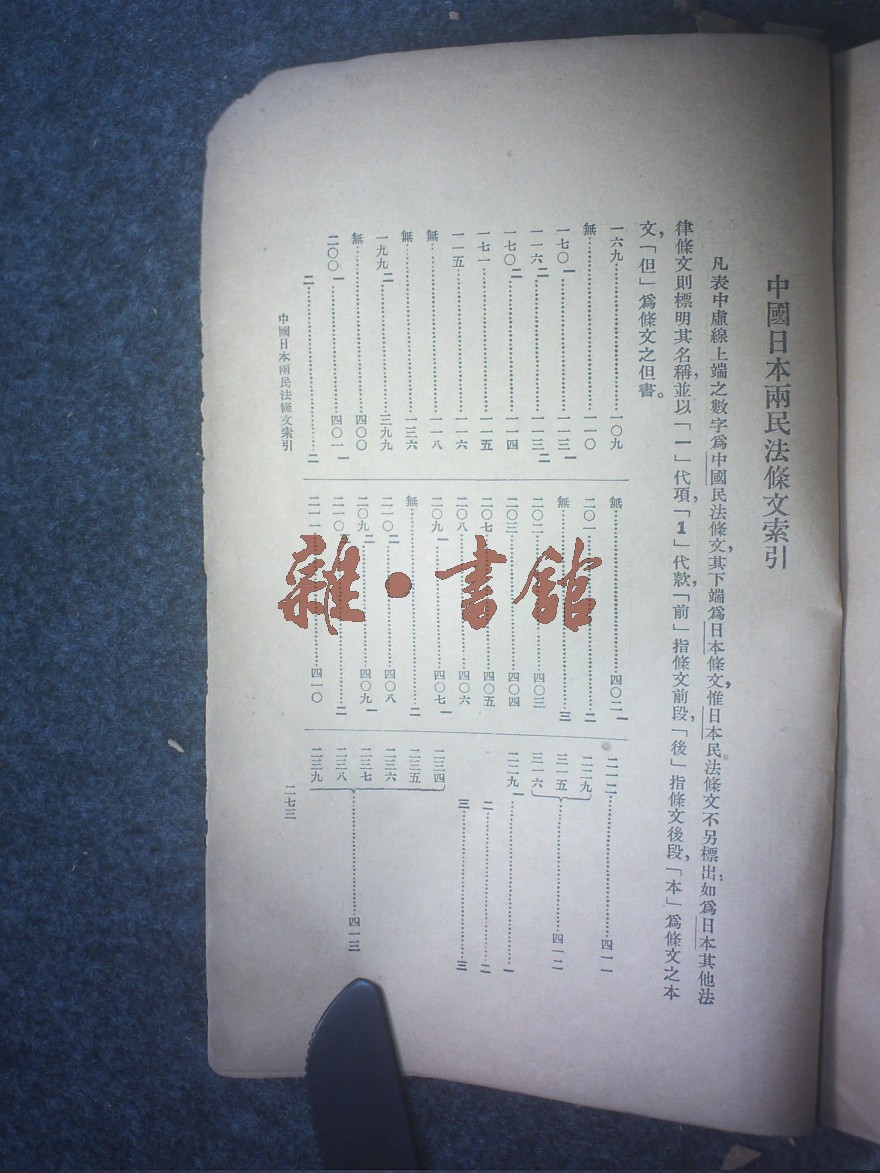 中國日本兩民法條文索引
凡表中虛線上端之數字爲中國民法條文，其下端爲日本條文，惟日本民法條文不另標出，如爲日本其他法
律條文則標明其名稱，並以「一」代項，「1」代款，「前」指條文前段，「後」指條文後段，「本」爲條文之本
文，「但」爲條文之但書。
一六九……一〇九
無……一一〇
一七〇一……一一三一
一一六二……一一三二
一七〇二……一一四
一七一……一一五
一一五……一一六
無……一一八
無……一三六
一九九二……三九九
無……四〇〇
二〇〇一……四〇一一
二……二
無……四〇二一
二〇一……二
無……三
二〇二……四〇三
二〇三……四〇四
二〇七……四〇五
二〇八……四〇六
二〇九一……四〇七一
無……二
二一〇二……四〇八
二〇九二……四〇九一
二一〇……二
二一一……四一〇
二一二……四一一
二二九
三一五
三一六
……四一二
二二九一……一
二……二
三……三
二三四
二三五
二三六
二三七
二三八
二三九
……四一三
中國日本兩民法條文索引
二七三
雜·書館